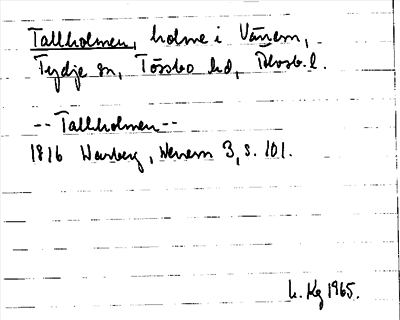 Tallholmen, holme i Vänern,
Tydje sn, Tössbo hd, Älvsb. l.
-- Tallholmen --
1816 Warberg, Wenern 3, s. 101.
L. Kg 1965.